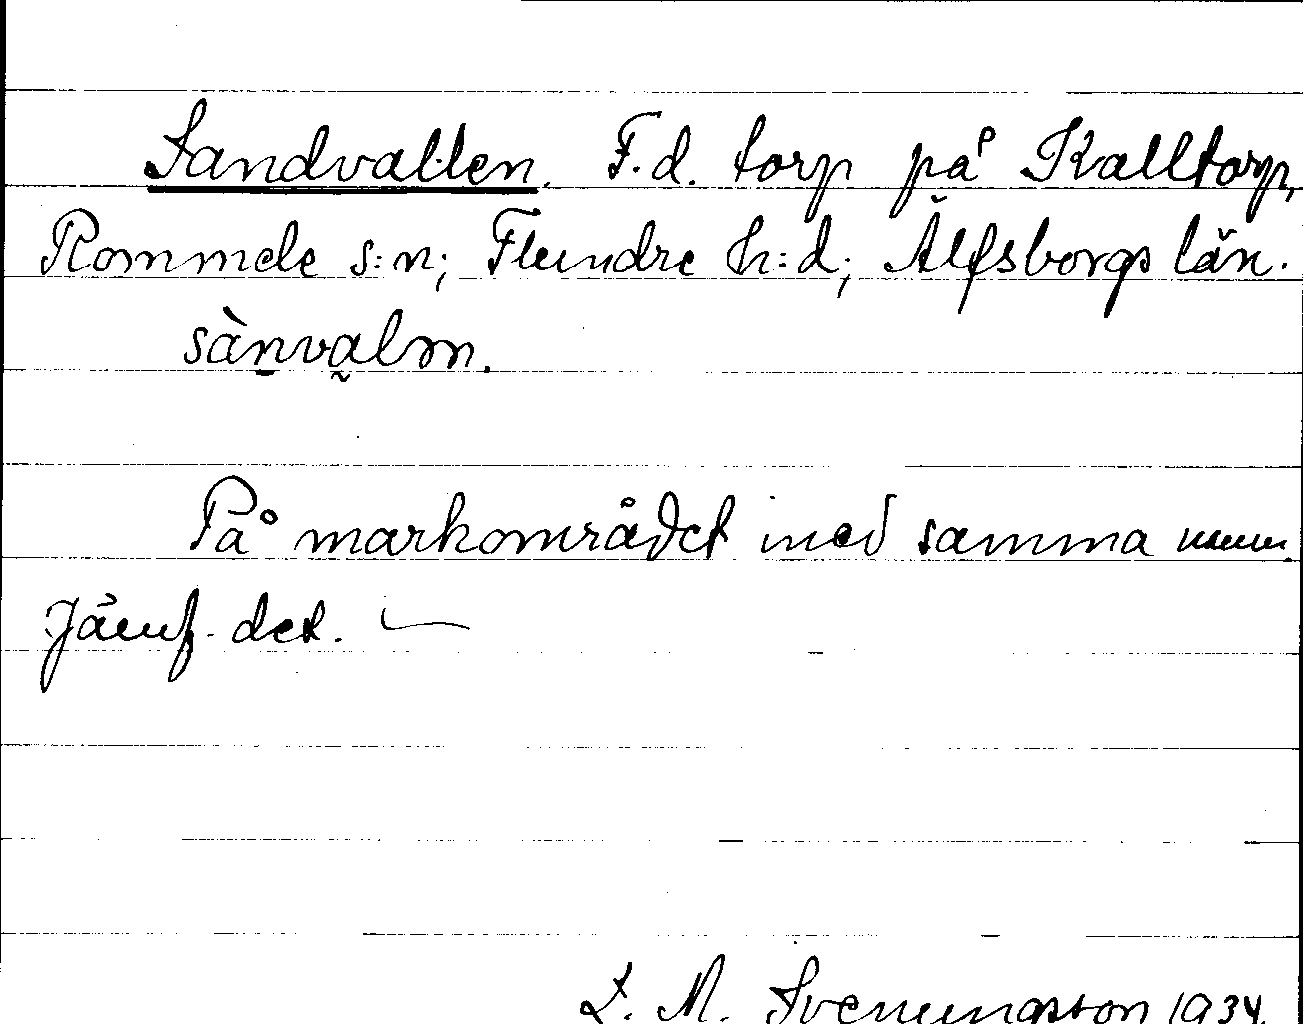 Sandvallen. F.d. torp på Kalltorp,
Rommele s:n; Flundre h:d; Älfsborgs län.
sànvalm.
På markområdet med samma namn.
Jämf. det.
S. M. Svenungsson 1934.